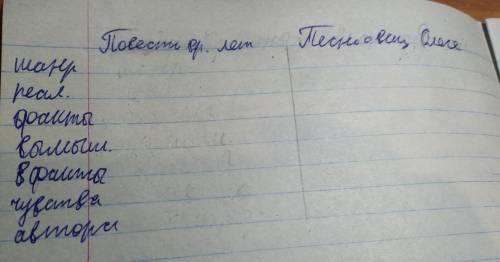 Повести вр. лет Песнь о вещ. Олеге
жанр
реал.
факты
вымыш.
в факты
чувства
автора